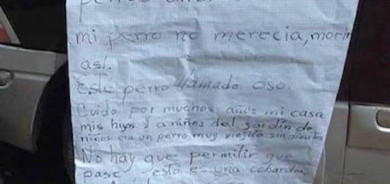 mi perro no merecia, morir
así.
Este perro llamado oso.
Cuido por muchos años mi casa
mis hijos y a niños del jardin de
niños era un perro muy viejito sin dientes
No hay que permitir que
pase, esto es una cobardia